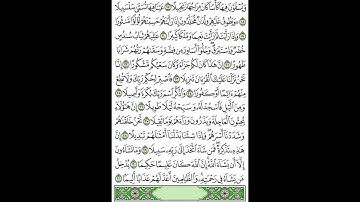 وَيُسْقَوْنَ فِيهَا كَأْسًا كَانَ مِزَاجُهَا زَنجَبِيلًا ١٧ عَيْنًا فِيهَا تُسَمَّىٰ سَلْسَبِيلًا ١٨
۞ وَيَطُوفُ عَلَيْهِمْ وِلْدَٰنٌ مُّخَلَّدُونَ إِذَا رَأَيْتَهُمْ حَسِبْتَهُمْ لُؤْلُؤًا مَّنثُورًا ١٩
وَإِذَا رَأَيْتَ ثَمَّ رَأَيْتَ نَعِيمًا وَمُلْكًا كَبِيرًا ٢٠ عَٰلِيَهُمْ ثِيَابُ سُندُسٍ
خُضْرٌ وَإِسْتَبْرَقٌ وَحُلُّوٓا۟ أَسَاوِرَ مِن فِضَّةٍ وَسَقَىٰهُمْ رَبُّهُمْ شَرَابًا
طَهُورًا ٢١ إِنَّ هَٰذَا كَانَ لَكُمْ جَزَآءً وَكَانَ سَعْيُكُم مَّشْكُورًا ٢٢ إِنَّا
نَحْنُ نَزَّلْنَا عَلَيْكَ ٱلْقُرْءَانَ تَنزِيلًا ٢٣ فَٱصْبِرْ لِحُكْمِ رَبِّكَ وَلَا تُطِعْ
مِنْهُمْ ءَاثِمًا أَوْ كَفُورًا ٢٤ وَٱذْكُرِ ٱسْمَ رَبِّكَ بُكْرَةً وَأَصِيلًا ٢٥
وَمِنَ ٱلَّيْلِ فَٱسْجُدْ لَهُۥ وَسَبِّحْهُ لَيْلًا طَوِيلًا ٢٦ إِنَّ هَٰٓؤُلَآءِ
يُحِبُّونَ ٱلْعَاجِلَةَ وَيَذَرُونَ وَرَآءَهُمْ يَوْمًا ثَقِيلًا ٢٧ نَّحْنُ خَلَقْنَٰهُمْ
وَشَدَدْنَآ أَسْرَهُمْ وَإِذَا شِئْنَا بَدَّلْنَآ أَمْثَٰلَهُمْ تَبْدِيلًا ٢٨ إِنَّ
هَٰذِهِۦ تَذْكِرَةٌ فَمَن شَآءَ ٱتَّخَذَ إِلَىٰ رَبِّهِۦ سَبِيلًا ٢٩ وَمَا تَشَآءُونَ
إِلَّآ أَن يَشَآءَ ٱللَّهُ إِنَّ ٱللَّهَ كَانَ عَلِيمًا حَكِيمًا ٣٠ يُدْخِلُ
مَن يَشَآءُ فِى رَحْمَتِهِۦ وَٱلظَّٰلِمِينَ أَعَدَّ لَهُمْ عَذَابًا أَلِيمًۢا ٣١